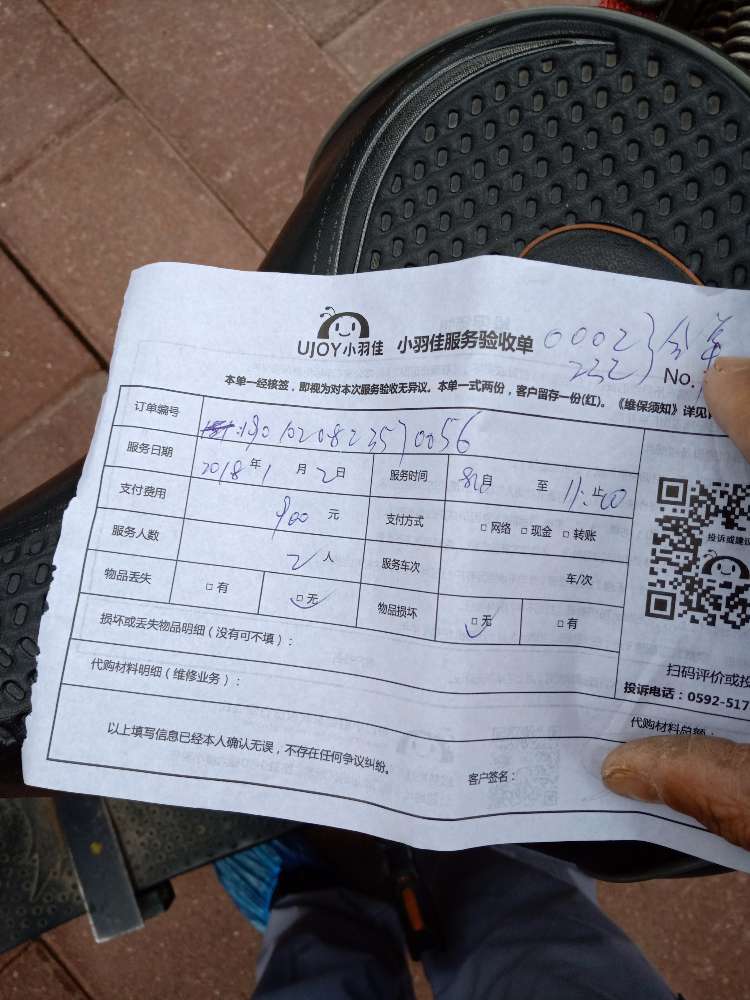 UJOY小羽佳 小羽佳服务验收单 0002
232
No.
本单一经核签，即视为对本次服务验收无异议。本单一式两份，客户留存一份(红)。《维保须知》详见
订单编号
服务日期 2018年1月2日 服务时间 至 止
支付费用 元 支付方式 □网络 □现金 □转账
服务人数 2人 服务车次 车/次
物品丢失 □有 □无 物品损坏 □无 □有
投诉或建议
损坏或丢失物品明细（没有可不填）：
扫码评价或投
代购材料明细（维修业务）：
投诉电话：0592-517
代购材料总额：
以上填写信息已经本人确认无误，不存在任何争议纠纷。 客户签名：